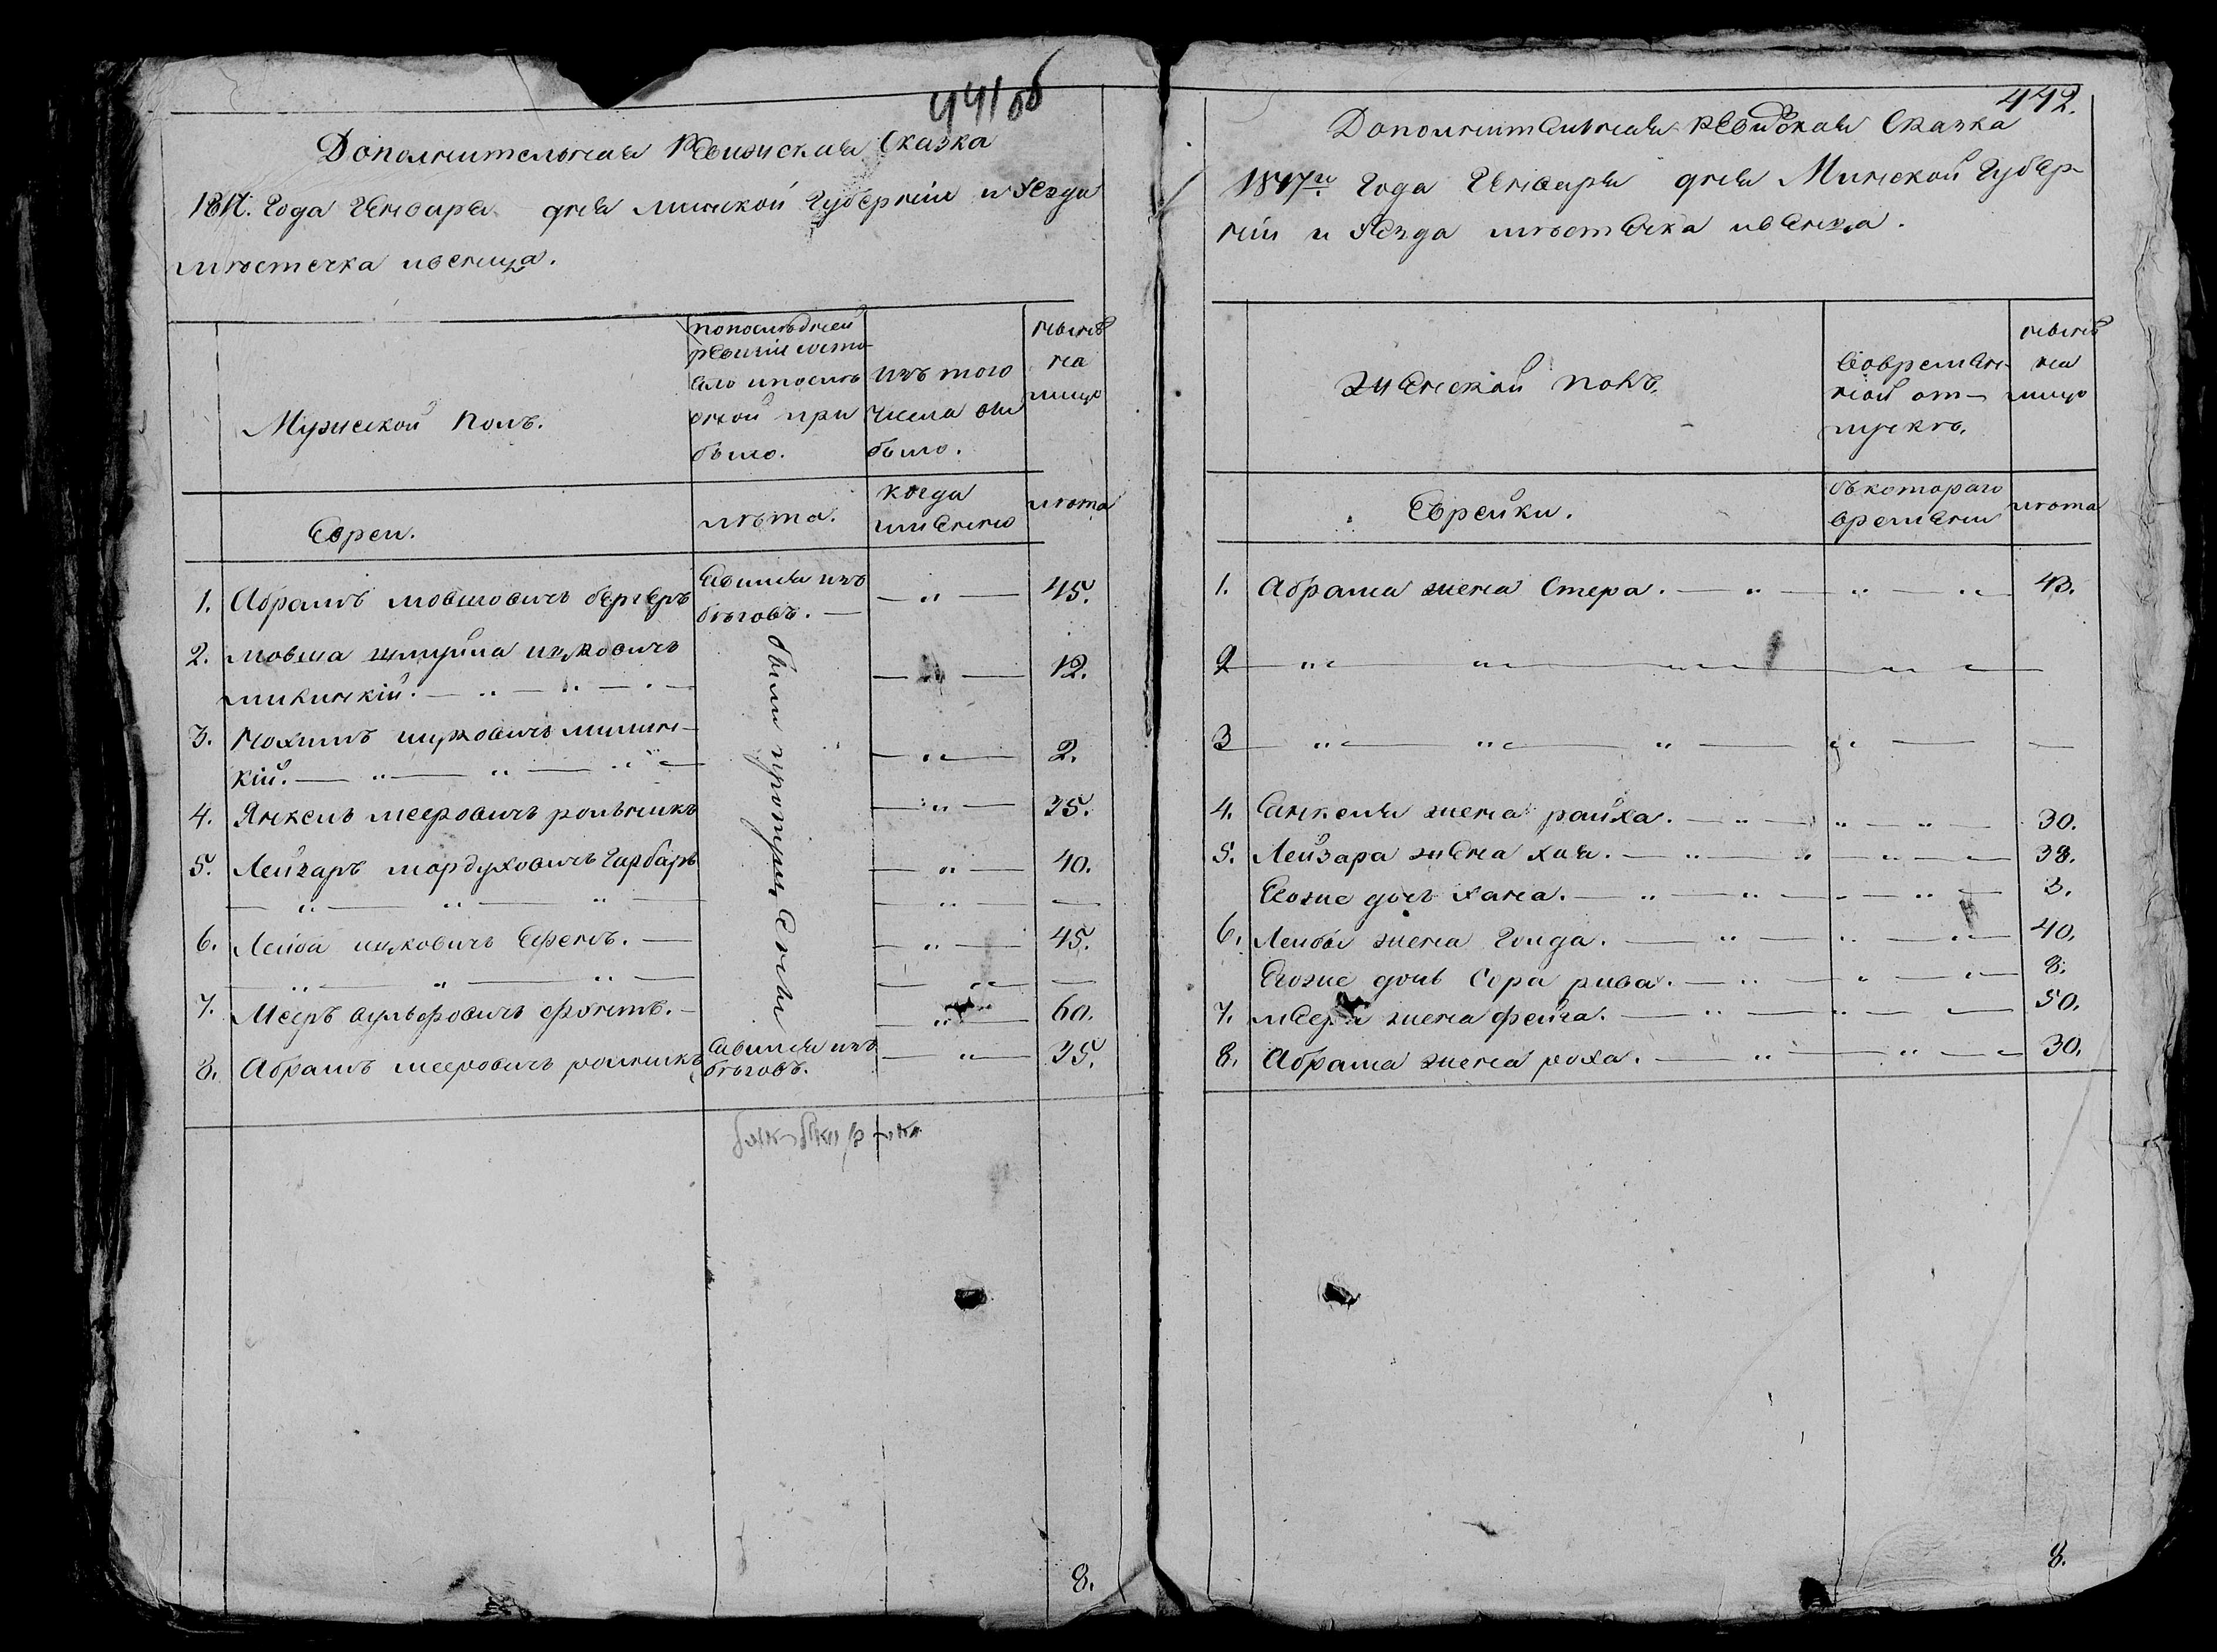 441об
Дополнительная Ревижская Сказка
1817. Года Генваря дня минской Губернии и уезда
мѣстечка ивенца.
Мужеской Полъ.
попослѣдней
ревизіи состо-
яло и послѣ
оной при
было.
изъ того
числа вы
было.
нынѣ
на
лицо
Евреи.
лѣта.
когда
имѣнно
лѣта
1. Абрамъ мовшовичъ бергеръ
явился изъ
бѣговъ.
45.
2. мовша шлиома ицковичъ
12.
3. ицковичъ
кій.
2.
4. Янкель мееровичъ рольникъ
35.
5. Лейзаръ мордуховичъ Гарбаръ
40.
6. Лейба ицковичъ
45.
7. Мееръ вульфовичъ
60.
8. Абрамъ мееровичъ рольникъ
явился изъ
бѣговъ.
35.
были пропущены
8.
442.
Дополнительная ревижская Сказка
1817го Года Генваря дня Минской Губер-
ніи и уезда мѣстечка ивенца.
женской полъ.
вовремен-
ной от-
лучкѣ.
нынѣ
на
лицо
Еврейки.
съ котораго
времени
лѣта
1. Абрама жена Стера.
43.
2
3
4. янкеля жена райха.
30.
5. Лейзара жена хая.
38.
Евоже дочь хана.
3.
6. Лейбы жена Голда.
40.
Евоже дочь Сора рива.
8.
7. меера жена фейга.
50.
8. Абрама жена роха.
30.
8.